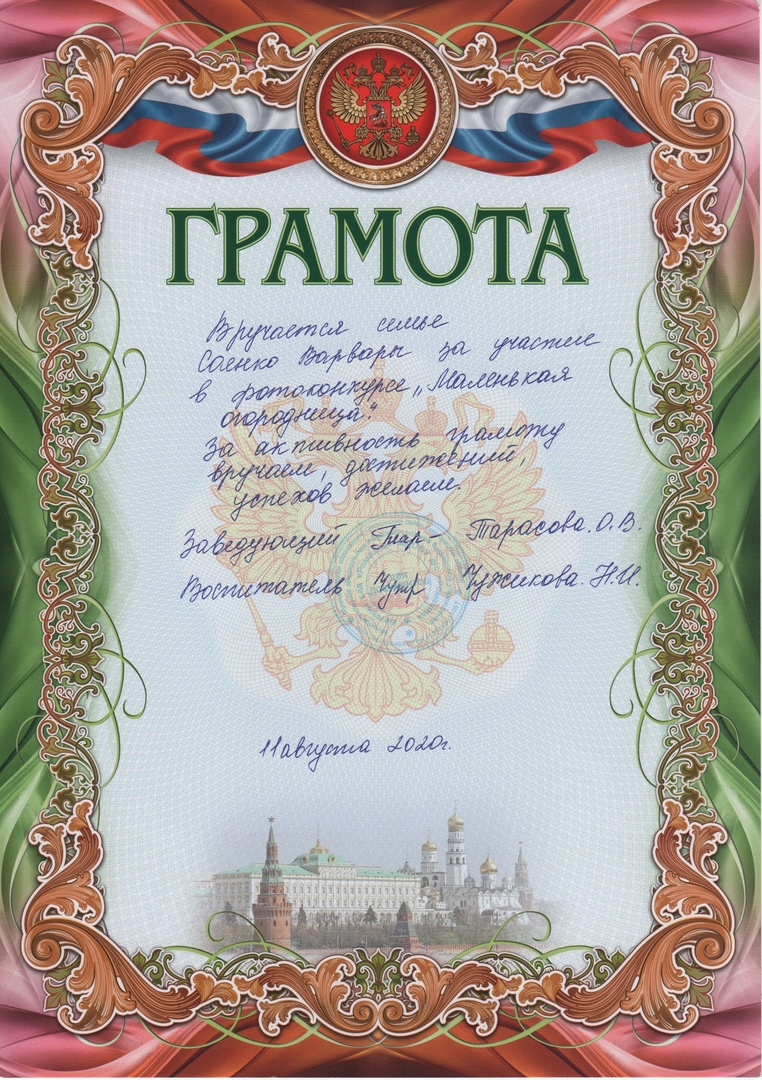 ГРАМОТА
Вручается семье
Саенко Варвары за участие
в фотоконкурсе „Маленькая
огородница“
За активность грамоту
вручаем, достижений,
успехов желаем.
Заведующий Тарасова. О.В.
Воспитатель Чужикова. Н.И.
11 августа 2020г.